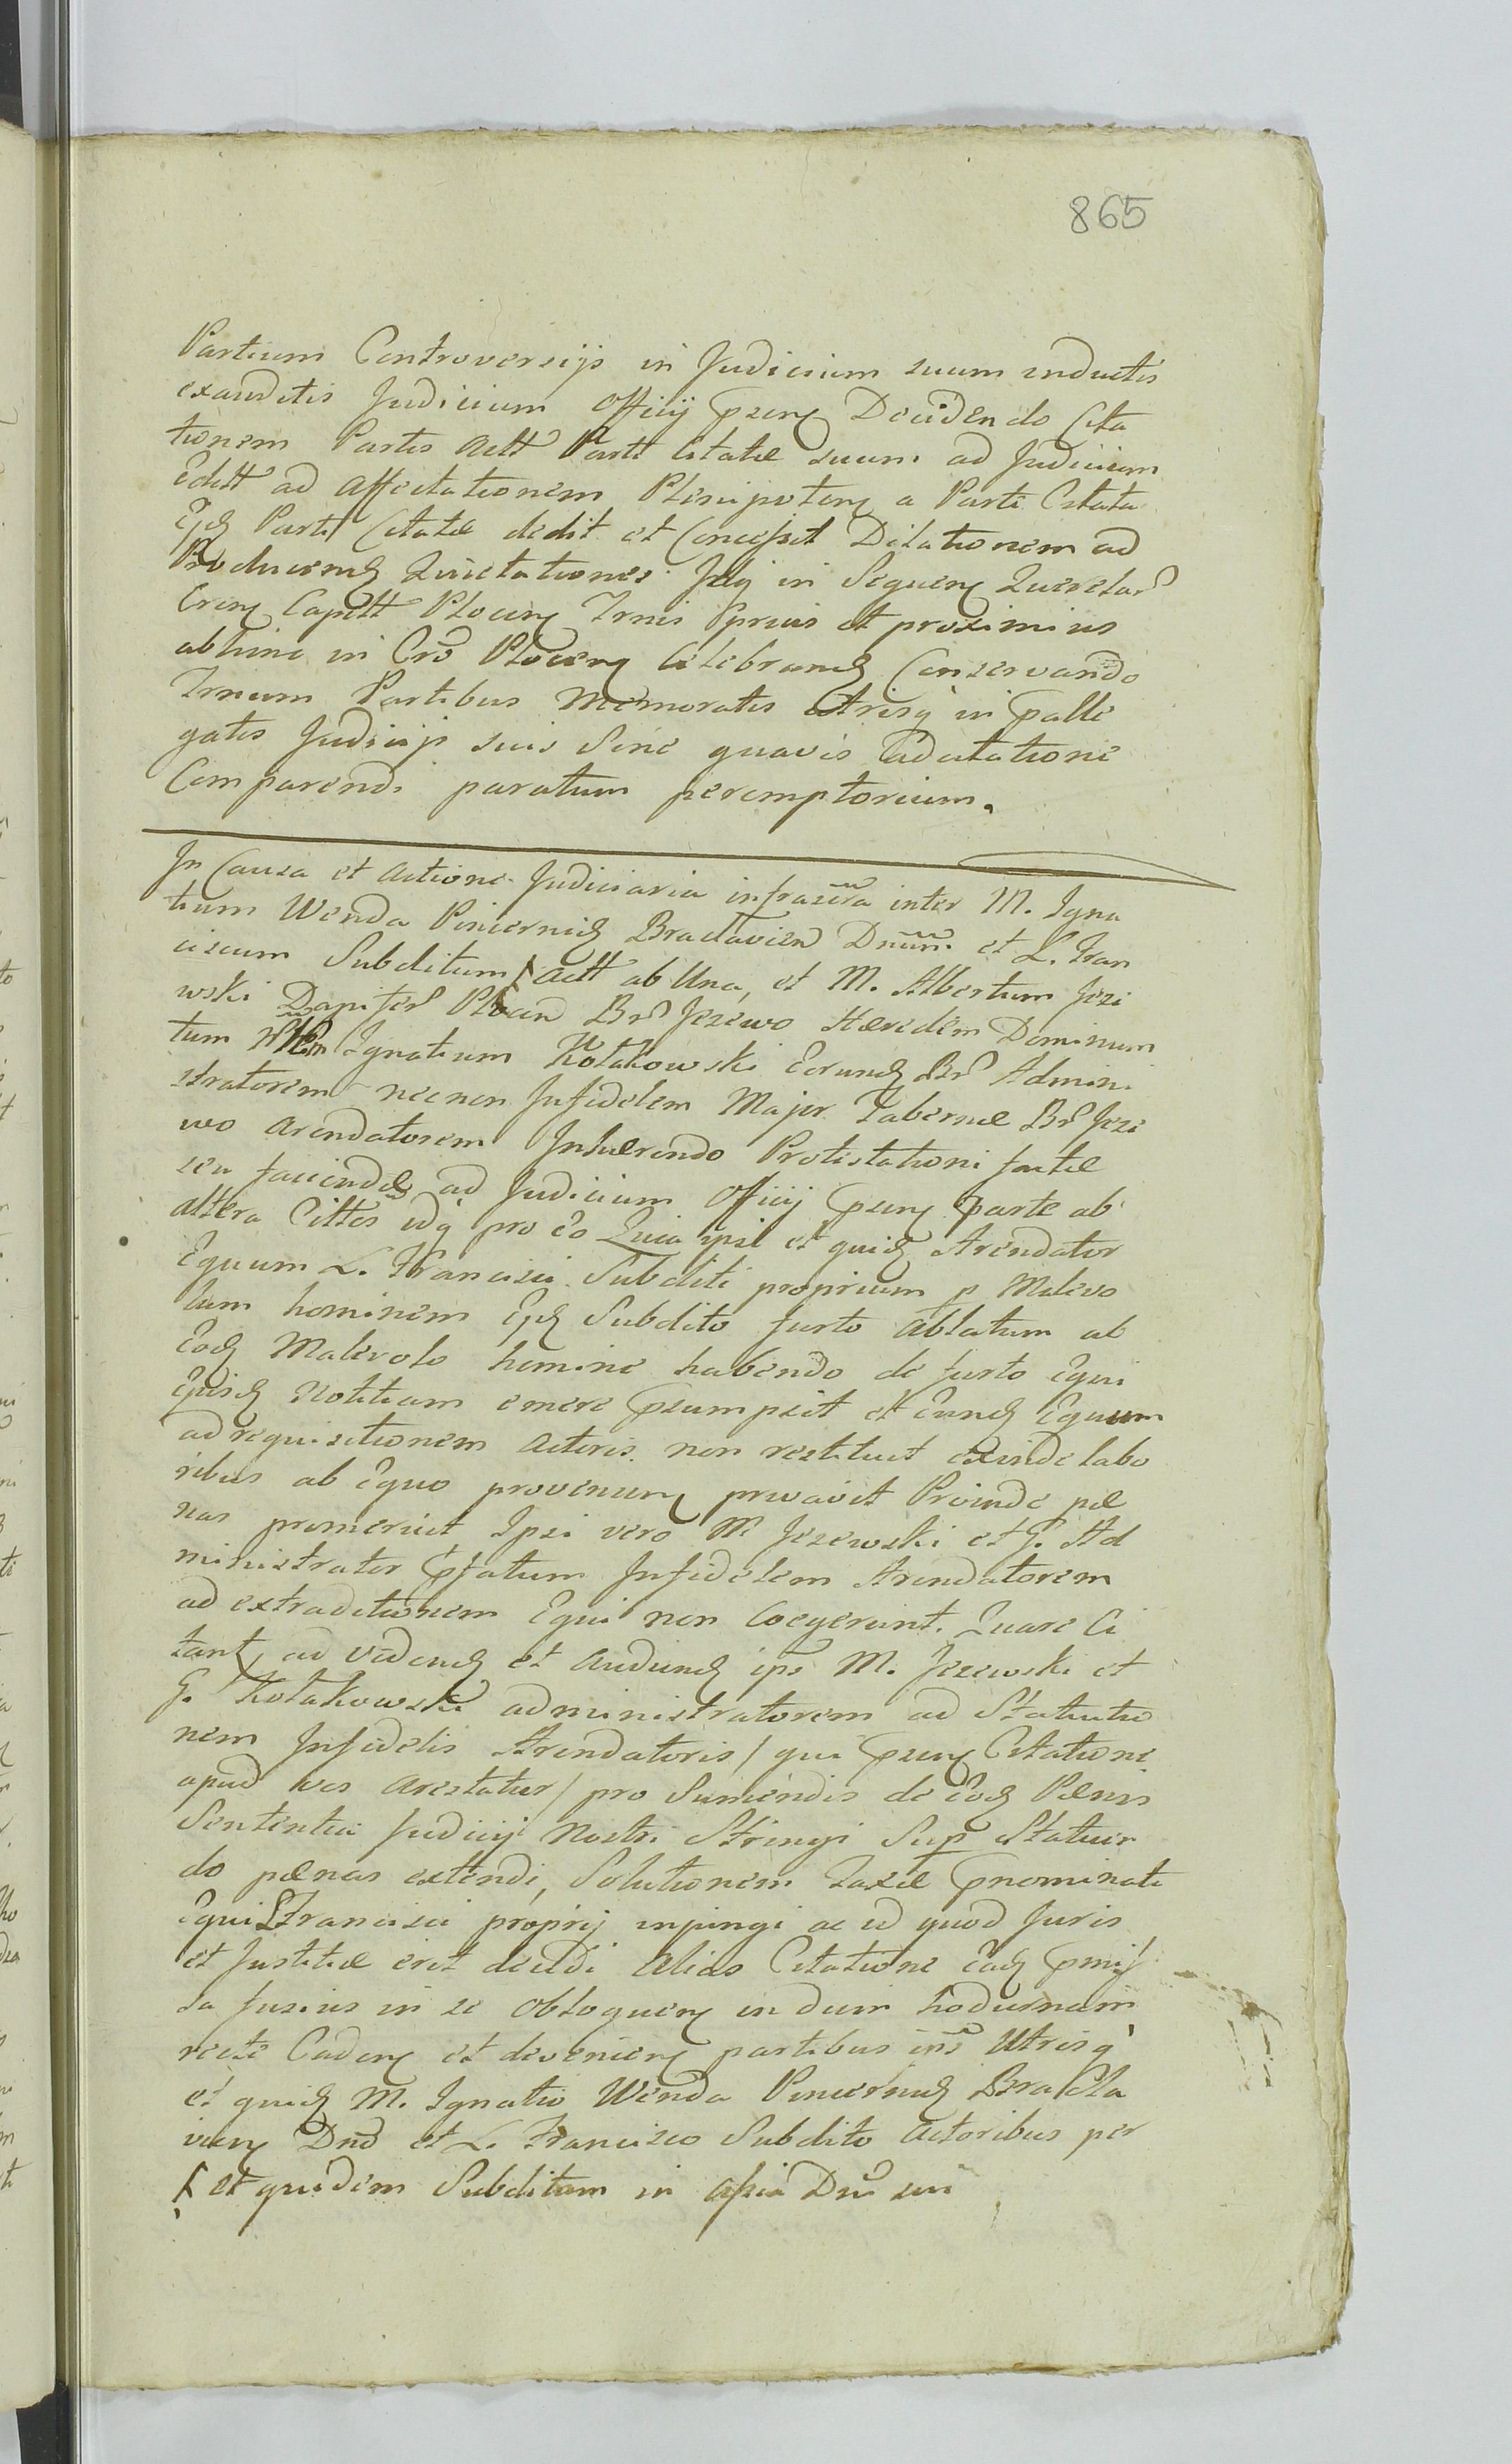 865
Partium Controversijs in Judicium suum inductis
exauditis Judicium Officij præñ Decidendo Cita
tionem Partis Actt Parti Citatæ suum ad Judicium
Editt ad Affectationem Plenipoteñ a Parte Citata
Ejd Parti Citatæ dedit et Concessit Dilationem ad
Producend Quietationes Idq in Sequeñ Querelar
Creñ Capitt Ploceñ Trnis prius et proximius
abhinc in Cro Ploceñ Celebrand Conservando
Trnum Partibus Memoratis Utrisq in præalle
gatis Judicijs suis Sine quavis adcitatione
Comparendi paratum peremptorium.
In Causa et Actione Judiciaria infrascra inter M. Igna
tium Wenda Pincernid Braclavien Dnum et L. Fran
ciscum Subditum Actt ab Una, et M. Albertum Jeze
wski Dapifer Br Jezewo Hæredem Dominum
tum Ignatium Kołakowski Eorund Br Admini
stratorem necnon Infidelem Major Tabernæ Br Jeze
wo Arendatorem Inhærendo Protestationi factæ
seu faciendæ ad Judicium Officij præñ Parte ab
altera Cittos idq pro eo Quia ipse et quid Arendator
Equum L. Francisci Subditi proprium p Malevo
lum hominem Ejd Subdito furto ablatum ab
Eod Malevolo homine habendo de furto Equi
Ejusd Notitiam emere præsumpsit et Eund Equum
ad requisitionem Actoris non restituit exinde labo
ribus ab Equo provenieñ privavit Proinde pæ
nas promeruit Ipsi vero M. Jezewski et G. Ad
ministrator præfatum Infidelem Arendatorem
ad extraditionem Equi non Coegerunt. Quare Ci
tant, ad Videnд et Audiend ips M. Jezewski et
G. Kołakowski administratorem ad Statuitio
nem Infidelis Arendatoris / qui præñ Citatione
apud vos Arestatur / pro Sumendis de Eod Pænis
Sententia Judicij Nostri Stringi Sup Statuen
do pænas extendi, Solutionem Taxæ prænominati
Equi L Francisci proprij inpingi ac id quod Juris
et Justitiæ erit decidi Alias Citatione Ead præmis
sa fusius in se Obloqueñ in diem hodiernam
recte Cadeñ et devenieñ partibus ips Utrisq
et quid M. Ignatio Wenda Pincernid Bracla
vieñ Dno et L. Francisco Subdito Actoribus per
et quidem Subditum in Assia Dni sui